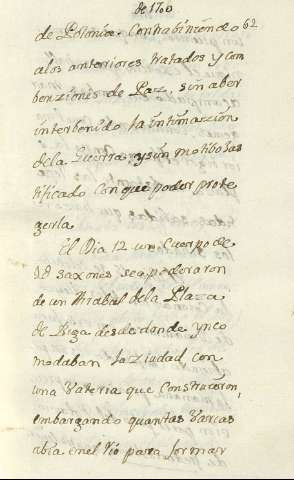 de 1700
62
de Polonia. Contrabiniendo
a los anteriores tratados y com
benziones de Paz, sin aber
interbenido la intimazion
dela Guerra, y sin motibo Jus
tificado con que poder prote
gerla.
El Dia 12 un Cuerpo de
saxones, se apoderaron
de un Arabal dela Plaza
de Riga desde donde ynco
modaban la Ziudad, con
una Vateria que Construieron,
embargando quantas Varcas
abia enel rio para formar